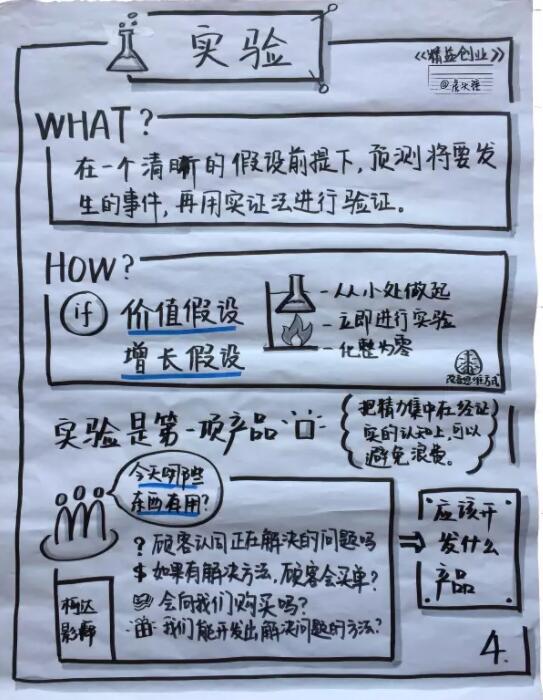 实验
《精益创业》
WHAT?
在一个清晰的假设前提下，预测将要发
生的事件，再用实证法进行验证。
HOW?
if
价值假设
增长假设
-从小处做起
-立即进行实验
-化整为零
改变思维方式
实验是第一项产品
把精力集中在经证
实的认知上，可以
避免浪费。
今天哪些
东西有用?
? 顾客认同正在解决的问题吗
$ 如果有解决方法，顾客会买单?
会向我们购买吗?
我们能开发出解决问题的方法?
柯达
影廊
应该开
发什么
产品
4.